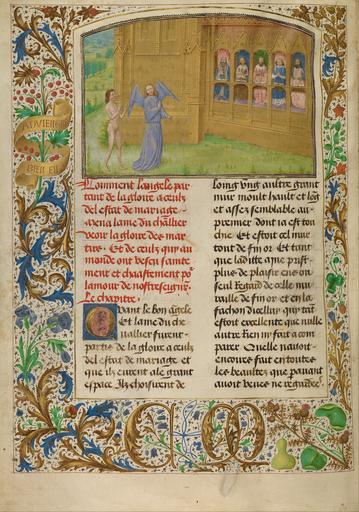 Comment langele par
tant de la gloire a ceulz
del estat de mariage
mena lame du chllier
veoir la gloire des mar
tirs. Et de ceulz qui au
monde ont vescu sainte
ment et chastement po
lamour de nostreseignr.
Le chapitre.
Quant le bon angele
Et lame du che
uallier furent
partis de la gloire a ceulz
del estat de mariage et
que ilz eurent ale grant
espace Ilz choisirent de
loing vng aultre grant
mur moult hault et long
et assez semblable au
premier dont ia est ton
chie. Et estoit cel mur
tout de fin or. Et tant
que laditte ame prist
plus de plaisir en
seul regard de celle mu
raille de fin or et en la
fachon dicellui qui tāt
estoit excellente que nulle
autre Rien ne fait a com
parer Quelle nauoit
encoires fait en toutes
les beaultez que parauant
auoit veues ne regardees